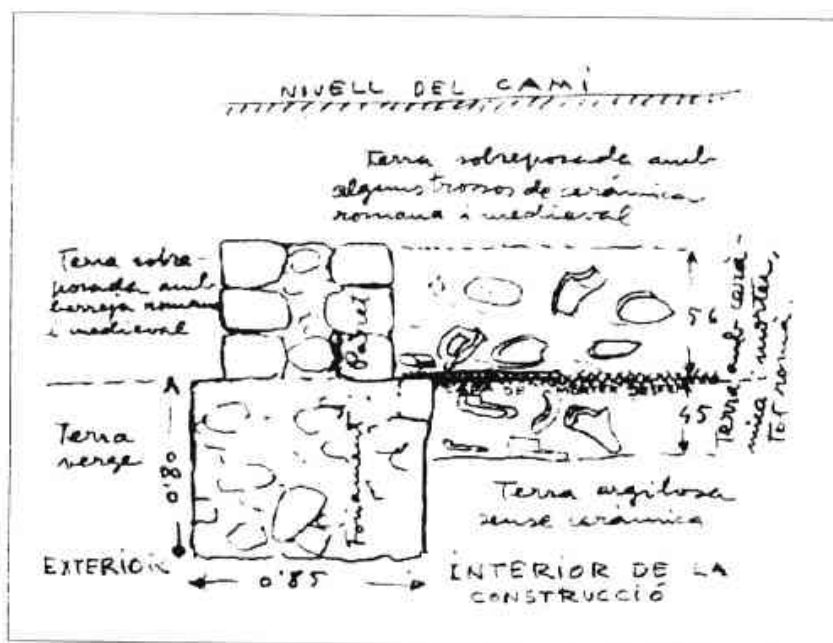 NIVELL DEL CAMÍ
terra sobreposada amb
alguns trossos de ceràmica
romana i medieval
Terra sobre-
posada amb
barreja romana
i medieval
Paret
56
Terra amb cerà-
mica i mórter,
tot romà.
CAPA DE MORTER
45
Terra
verge
0'80
Fonament
Terra argilosa
sense ceràmica
EXTERIOR
0'85
INTERIOR DE LA
CONSTRUCCIÓ